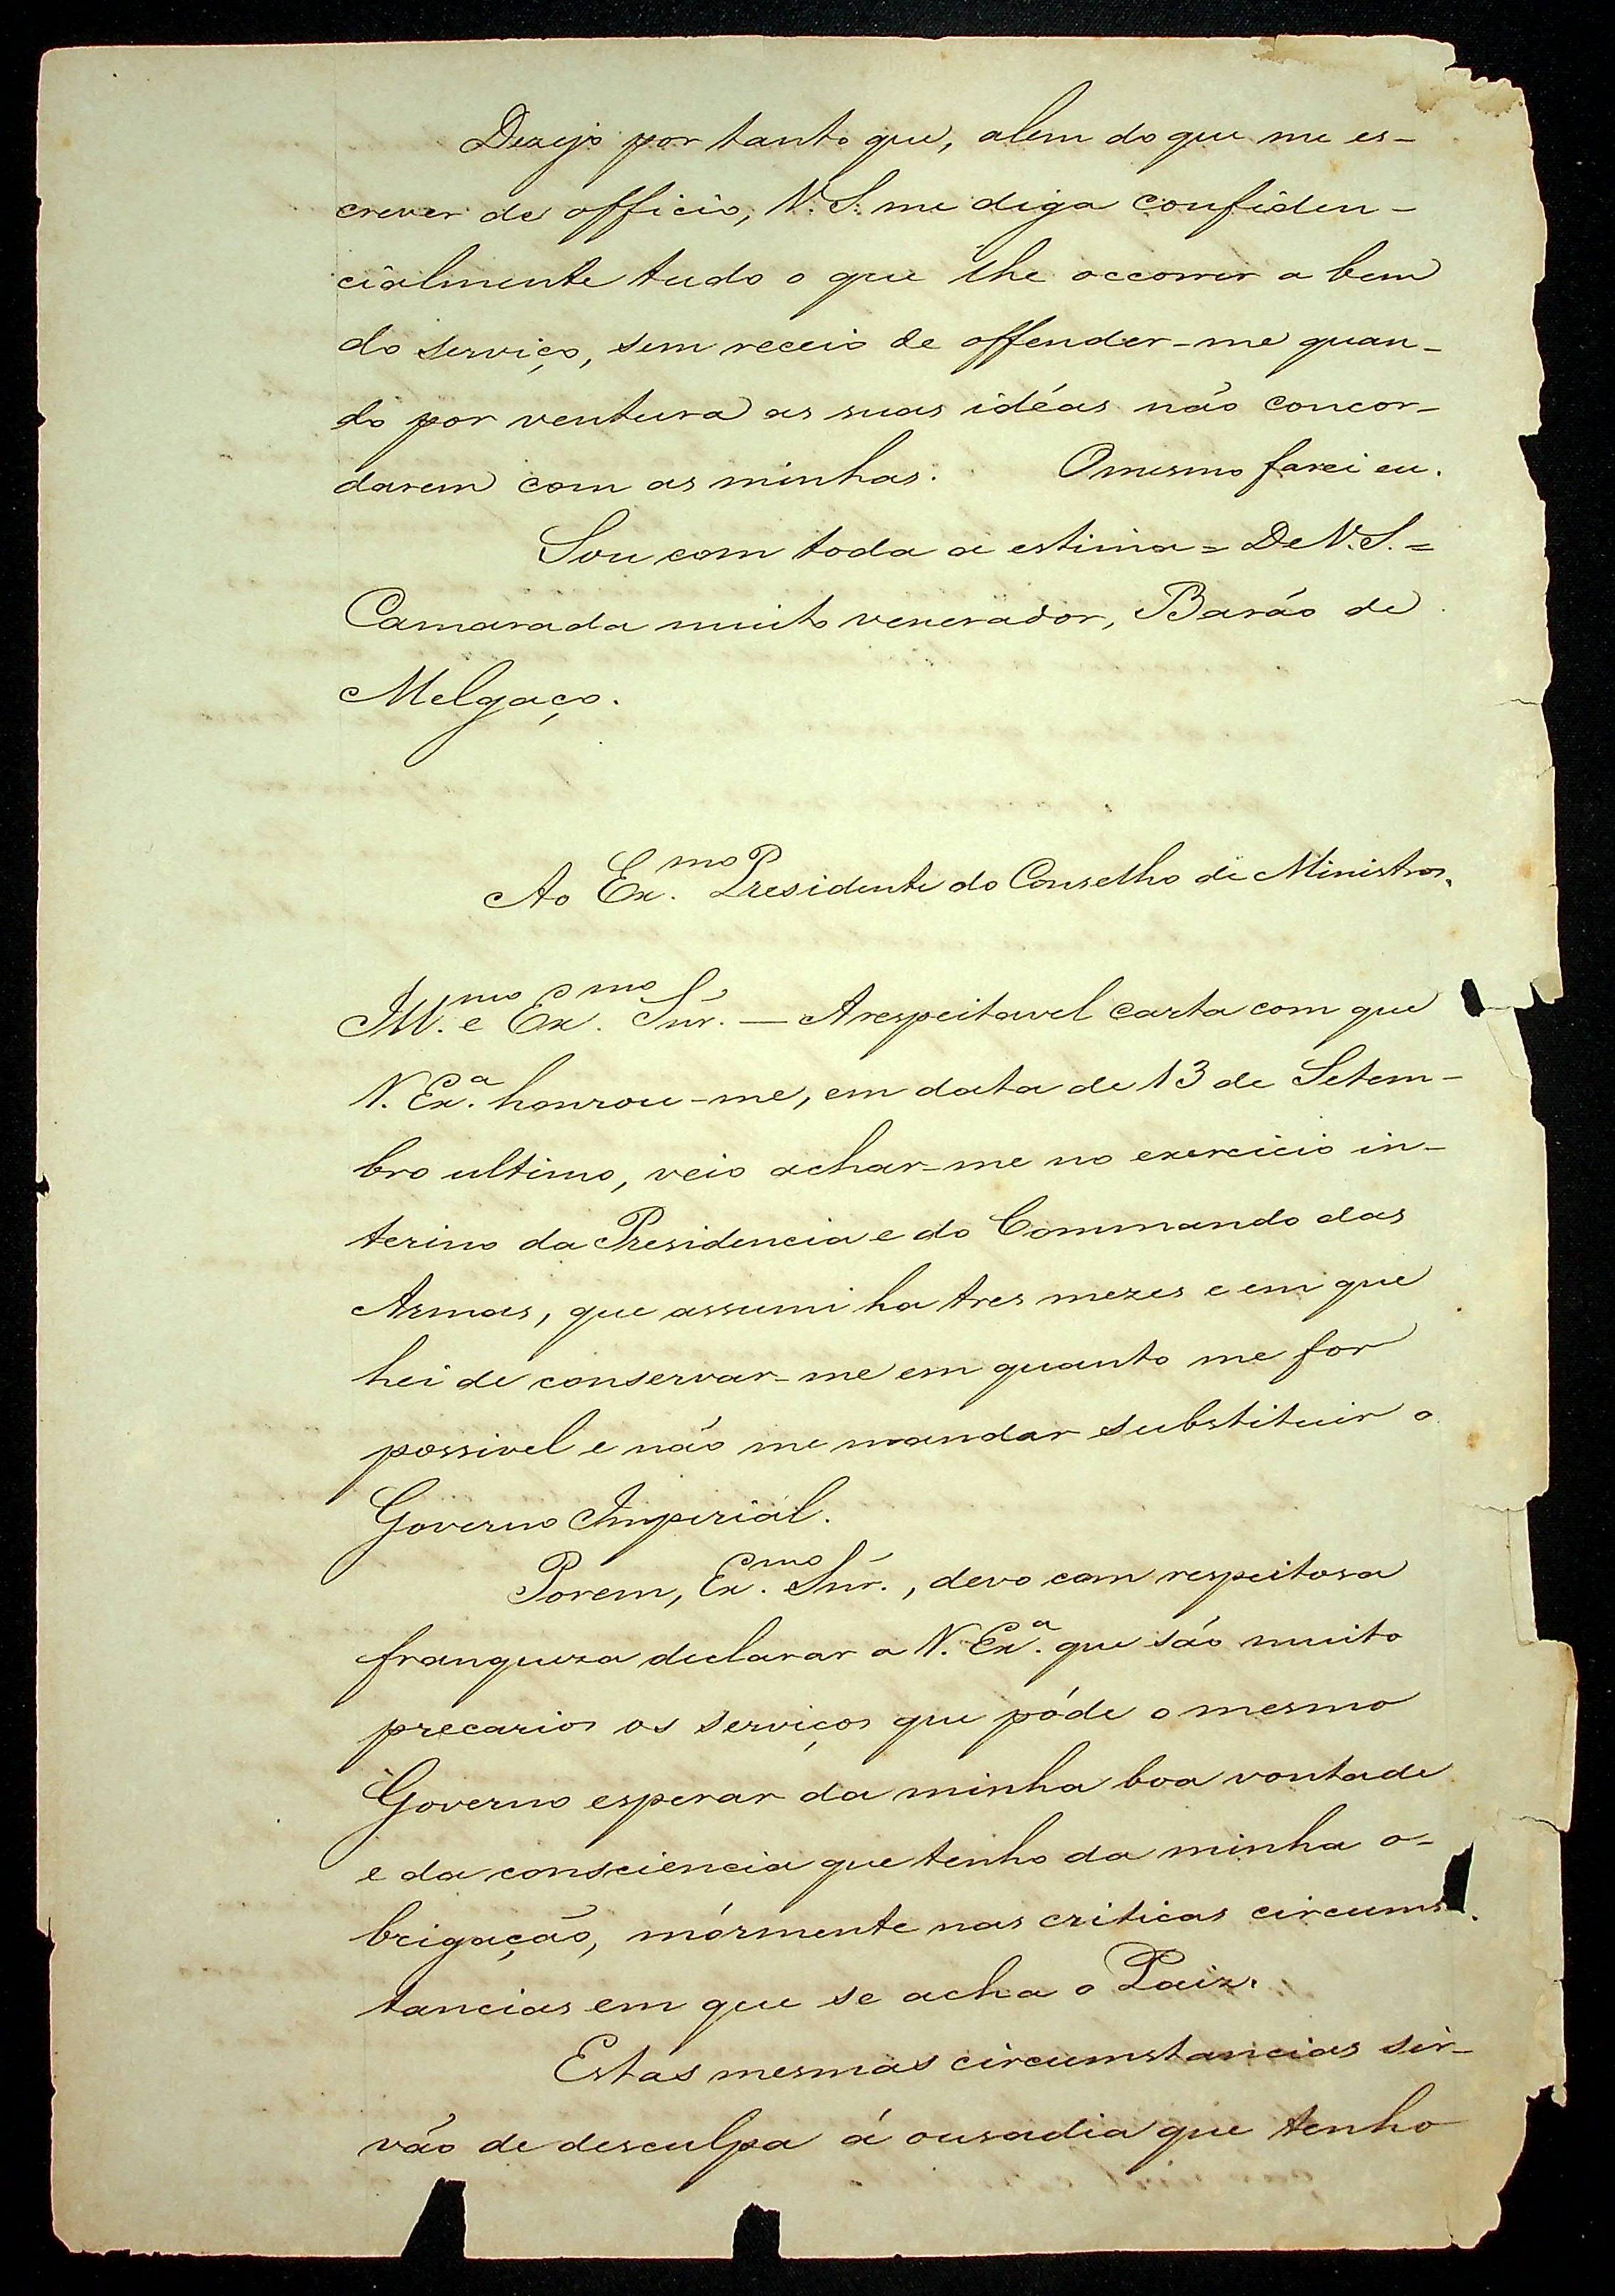 Dezejo por tanto que, alem do que me es-
crever de officio, V. S. me diga confiden-
cialmente tudo o que lhe occorrer a bem
do serviço, sem receio de offender-me quan-
do por ventura as suas idéas não concor-
darem com as minhas. O mesmo farei eu.
Sou com toda a estima = De V. S. =
Camarada muito venerador, Barão de
Melgaço.
Ao Ex.mo Presidente do Conselho de Ministros.
Ill.mo e Ex.mo Snr. — A respeitavel carta com que
V. Ex.a honrou-me, em data de 13 de Setem-
bro ultimo, veio achar-me no exercicio in-
terino da Presidencia e do Commando das
Armas, que assumi ha tres mezes e em que
hei de conservar-me em quanto me for
possivel e não me mandar substituir o
Governo Imperial.
Porem, Ex.mo Snr., devo com respeitosa
franqueza declarar a V. Ex.a que são muito
precarios os serviços que póde o mesmo
Governo esperar da minha boa vontade
e da consciencia que tenho da minha o-
brigação, mórmente nas criticas circums-
tancias em que se acha o Paiz.
Estas mesmas circumstancias sir-
vão de desculpa á ousadia que tenho